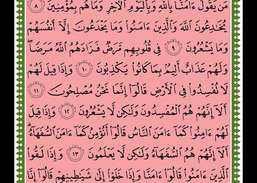 مَن يَقُولُ ءَامَنَّا بِٱللَّهِ وَبِٱلۡيَوۡمِ ٱلۡأٓخِرِ وَمَا هُم بِمُؤۡمِنِينَ ٨
يُخَٰدِعُونَ ٱللَّهَ وَٱلَّذِينَ ءَامَنُواْ وَمَا يَخۡدَعُونَ إِلَّآ أَنفُسَهُمۡ
وَمَا يَشۡعُرُونَ ٩ فِي قُلُوبِهِم مَّرَضٞ فَزَادَهُمُ ٱللَّهُ مَرَضٗاۖ
وَلَهُمۡ عَذَابٌ أَلِيمُۢ بِمَا كَانُواْ يَكۡذِبُونَ ١٠ وَإِذَا قِيلَ لَهُمۡ
لَا تُفۡسِدُواْ فِي ٱلۡأَرۡضِ قَالُوٓاْ إِنَّمَا نَحۡنُ مُصۡلِحُونَ ١١
أَلَآ إِنَّهُمۡ هُمُ ٱلۡمُفۡسِدُونَ وَلَٰكِن لَّا يَشۡعُرُونَ ١٢ وَإِذَا قِيلَ
لَهُمۡ ءَامِنُواْ كَمَآ ءَامَنَ ٱلنَّاسُ قَالُوٓاْ أَنُؤۡمِنُ كَمَآ ءَامَنَ ٱلسُّفَهَآءُۗ
أَلَآ إِنَّهُمۡ هُمُ ٱلسُّفَهَآءُ وَلَٰكِن لَّا يَعۡلَمُونَ ١٣ وَإِذَا لَقُواْ
ٱلَّذِينَ ءَامَنُواْ قَالُوٓاْ ءَامَنَّا وَإِذَا خَلَوۡاْ إِلَىٰ شَيَٰطِينِهِمۡ قَالُوٓاْ إِنَّا